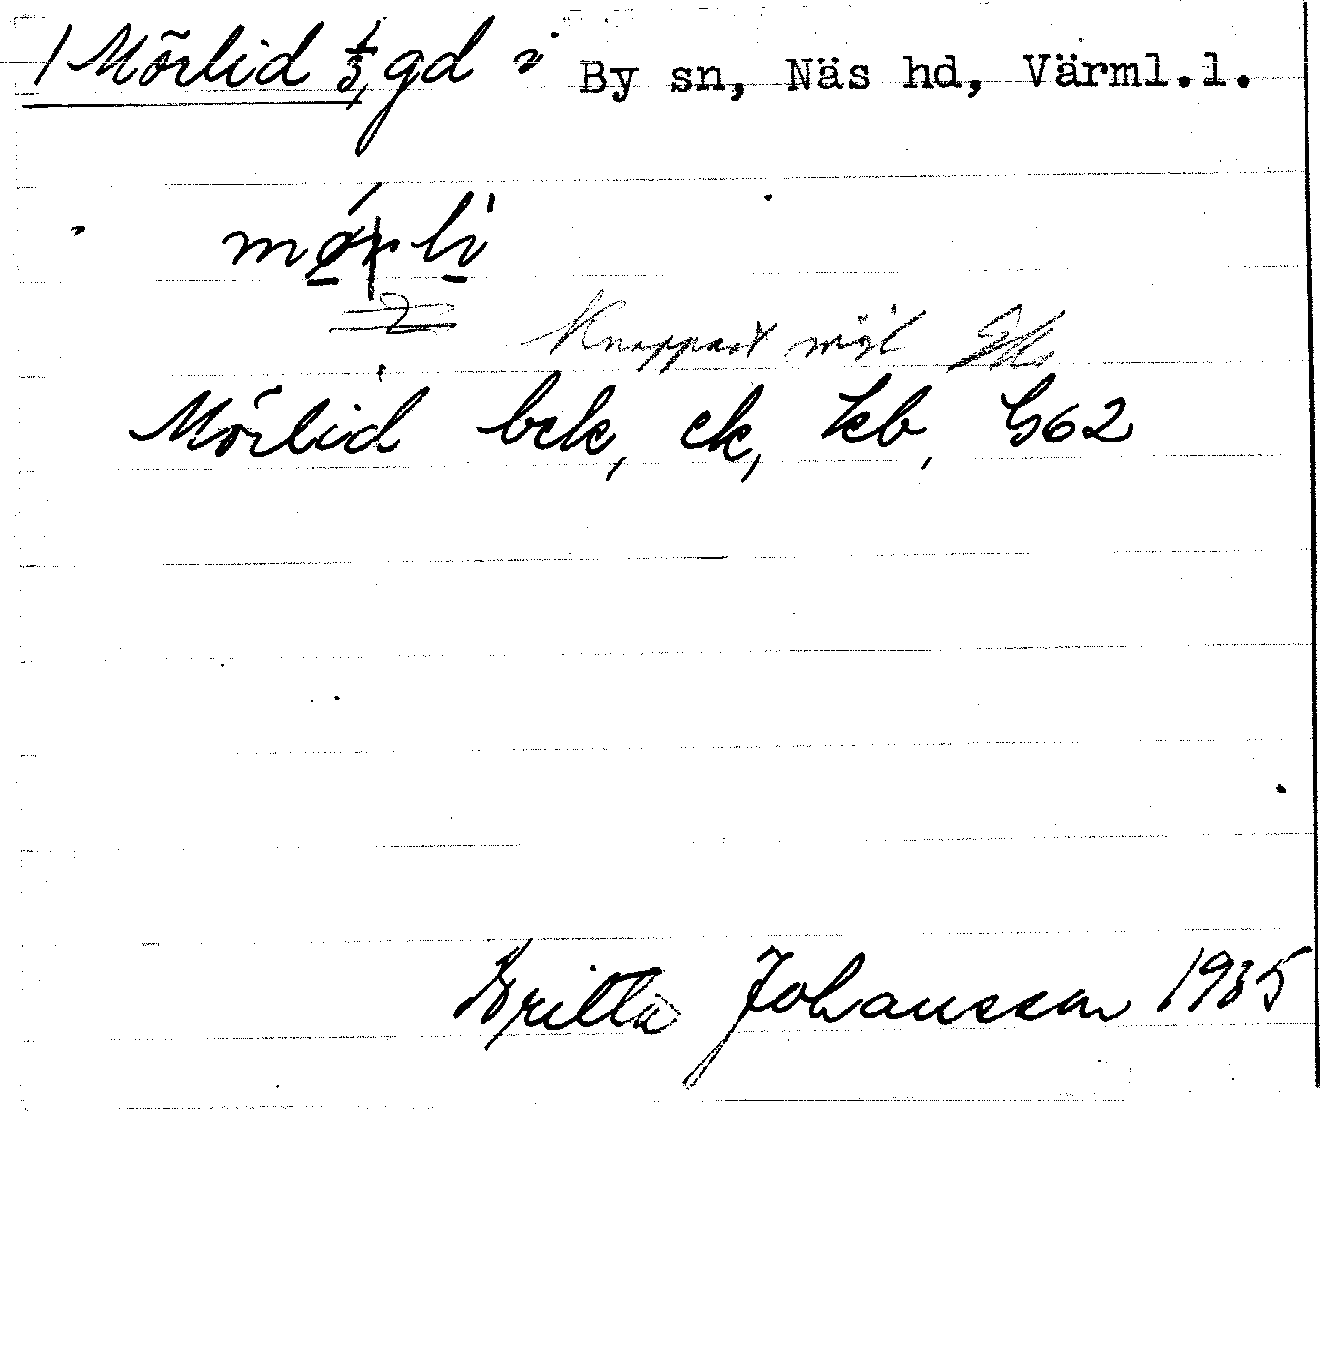 1 Mörlid 1/3, gd i By sn, Näs hd, Värml.l.
mø̱rli̱
2
Knappast möjl
Mörlid bck, ck, kb, G62
Britta Johansson 1935